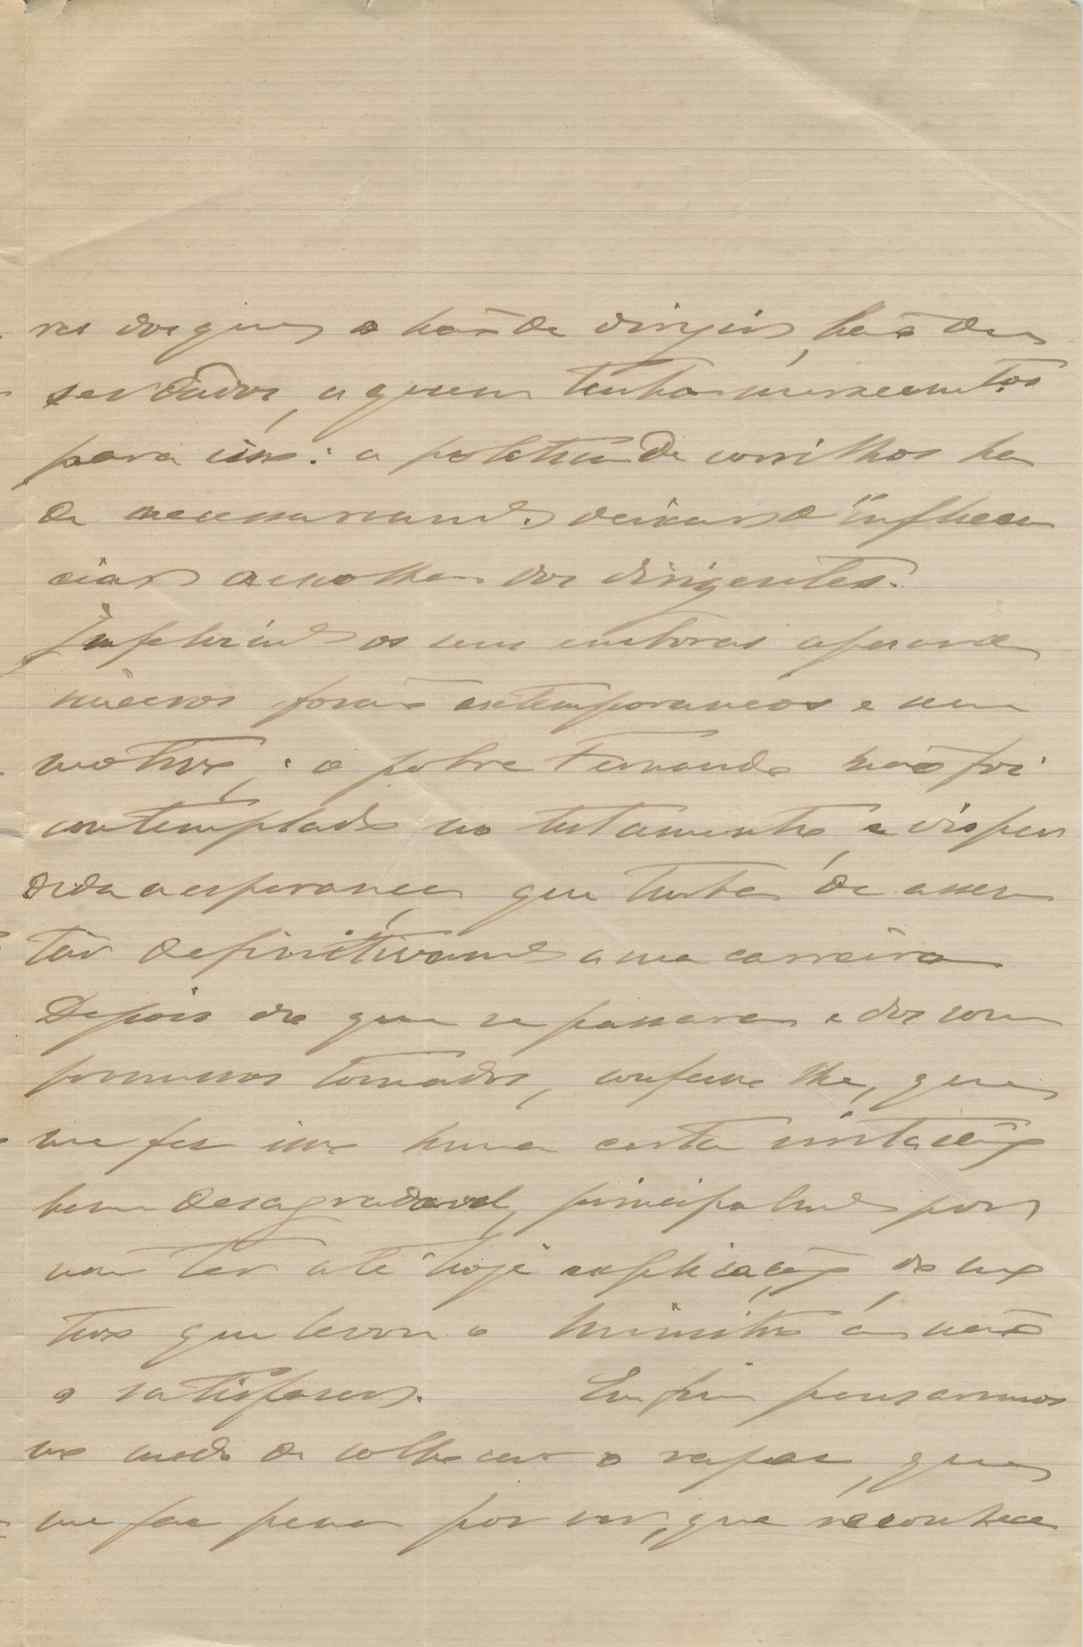 res dos que o hão de dirigir, hão de
ser dados, a quem tenha merecimentos
para isso: a politica de corrilhos ha
de necessariamte. deixar d'influen
ciar a escolha dos dirigentes.
Infelizmte os seus embora a
 forão extemporaneos e sem
motivo; o pobre Fernando não foi
contemplado no testamento, e disper
dida a esperança que tinha de assen
tar definitivamte a sua carreira
Depois do que se passara e dos com
promissos tomados, confesso lhe, que
me fez isso huma certa irritação
bem desagradavel, principalmte por
não ter até hoje explicação do mo
tivo que levou o Ministro á não
o satisfazer. Em fim pensaremos
no modo de collocar o rapaz, que
me faz pena por ver, que reconhece